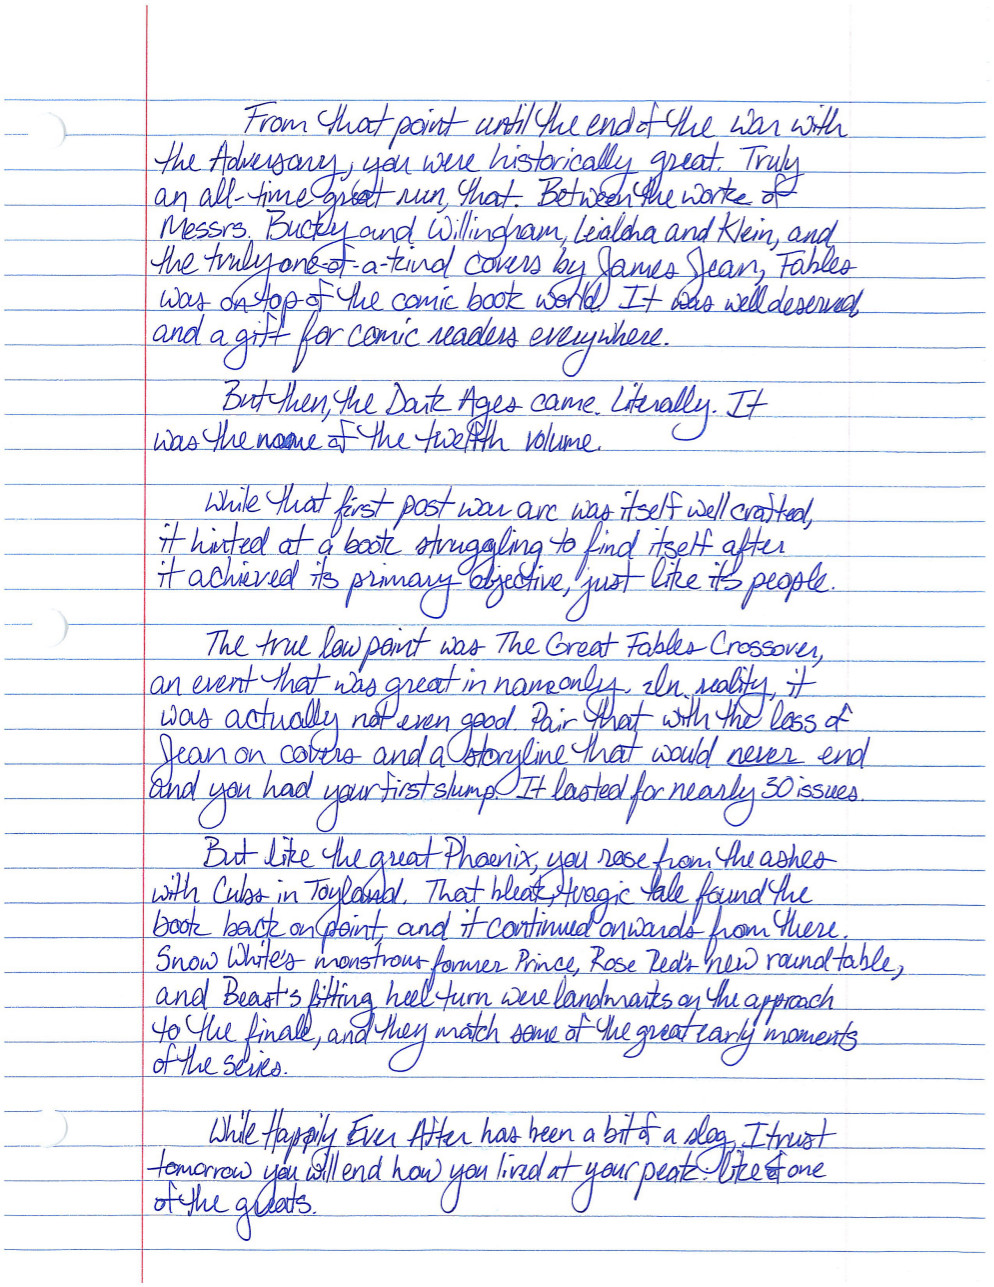 From that point until the end of the War with
the Adversary, you were historically great. Truly
an all-time great run, that. Between the works of
Messrs. Bucky and Willingham, Leialoha and Klein, and
the truly one-of-a-kind covers by James Jean, Fables
was on top of the comic book world. It was well deserved
and a gift for comic readers everywhere.
But then, the Dark Ages came. Literally. It
was the name of the twelfth volume.
While that first post war arc was itself well crafted,
it hinted at a book struggling to find itself after
it achieved its primary objective, just like its people.
The true low point was The Great Fables Crossover,
an event that was great in name only. In reality, it
was actually not even good. Pair that with the loss of
Jean on covers and a storyline that would never end
and you had your first slump. It lasted for nearly 30 issues.
But like the great Phoenix, you rose from the ashes
with Cubs in Toyland. That bleak, tragic tale found the
book back on point, and it continued onwards from there.
Snow White's monstrous former Prince, Rose Red's new roundtable,
and Beast's fitting heel turn were landmarks on the approach
to the finale, and they match some of the great early moments
of the series.
While Happily Ever After has been a bit of a slog, I trust
tomorrow you will end how you lived at your peak: like one
of the greats.